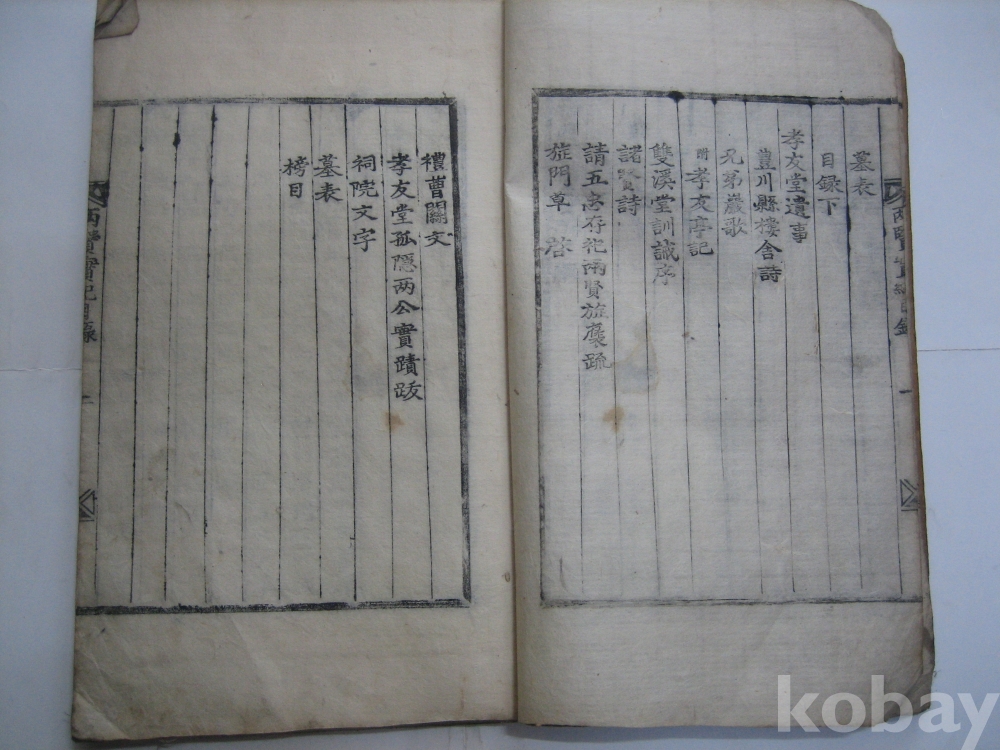 墓表
目録下
孝友堂遺事
豊川縣樓舍詩
兄弟巖歌
附 孝友亭記
雙溪堂訓誡序
諸賢詩
請五忠存祀兩賢旌褒疏
旌門草 啓
禮曹關文
孝友堂孤隠两公實蹟跋
祠院文字
墓表
榜目
两賢實記目錄
二
一
kobay